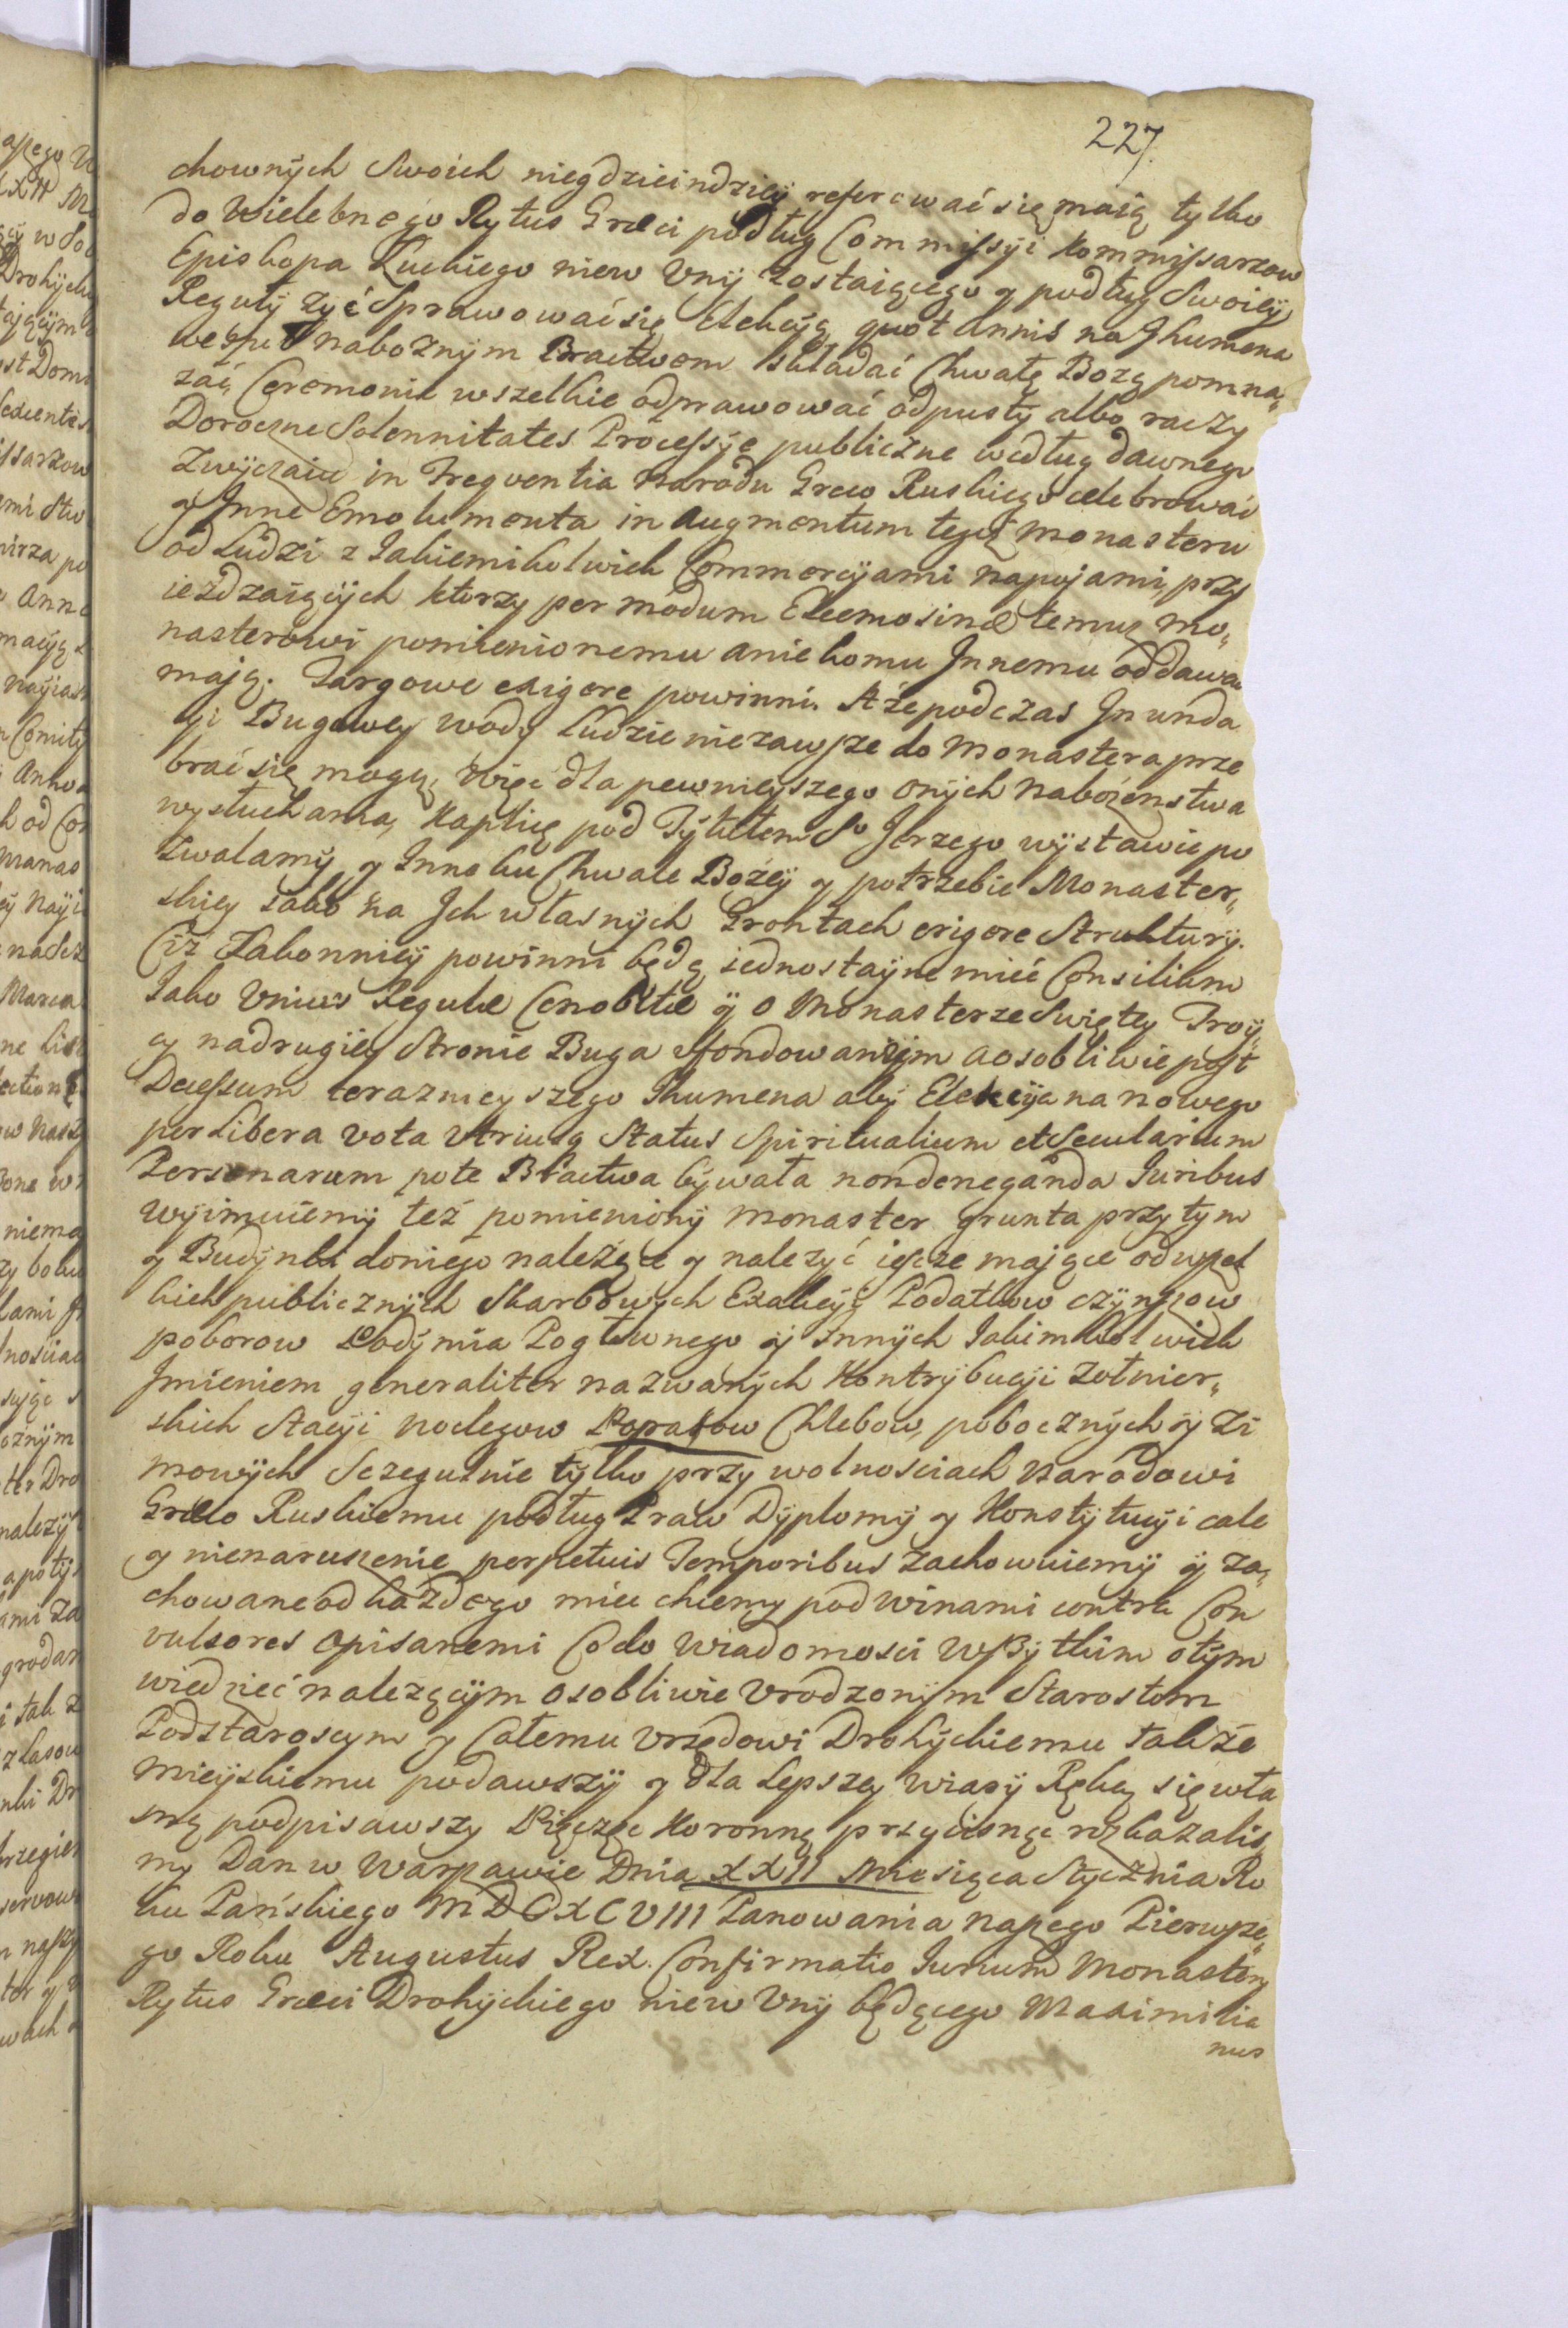 227.
chownych Swoich niegdzieindziey referować się maią tylko
do Wielebnego Rytus Græci podług Commissyi Kommissarzow
Episkopa Łuckiego niew Vnij zostaiącego y podług Swoiey
Reguły żyć Sprawować się Elekcyą quot Annis na Jhumena
wespuł nabożnym Bractwem składać Chwałę Bożą pomna„
żać Ceremonie wszelkie odprawować odpusty albo raczy
Doroczne Solennitates Processye publiczne według dawnego
Zwyczaiu in Freqventia Narodu Greco Ruskiego celebrować
y Jnne Emolumenta in Augmentum tegoż Monasteru
od Ludzi z Jakiemikolwiek Commercyami napojami, przy
ieżdzaiących ktorzy per modum Eleemosinæ temuż Mo„
nasterowi pomienionemu anie komu Jnnemu oddawa
mają. Targowe exigere powinni. A że podczas Jnunda
cyi Bugowey wody Ludzie niezawsze do Monastera prze
brać się mogą, Więc dla pewnieyszego onych Nabożenstwa
wysłuchania, Kaplicę pod Tytułem So Jerzego wystawić po
zwalamy y Jnno ku Chwale Bożey y potrzebie Monaster„
skiey iako na Jch własnych Grontach erigere Struktury.
Ciż Zakonnicy powinni będą iednostayne mieć Consilium
Jako Vnius Regulæ Cenobitæ y o Monasterze Swiętey Troy„
cy nadrugiey Stronie Buga ufondowanym a osobliwie post
Decessum teraznieyszego Jhumena aby Elekcya na nowego
per Libera vota Vtriusq Status Spiritualium et Secularium
Personarum pote Bractwa bywała nondeneganda Juribus
Wyimuiemy też pomieniony Monaster grunta przytym
y Budynki doniego należące y należyć iescze mające odwszel
kich publicznych Skarbowych Exakcyi Podatkow czynszow
poborow Podymia Pogłownego y Jnnych Jakimkolwiek
Jmieniem generaliter nazwanych Kontrybucyi żołnier„
skich Stacyi noclegow Popasow Chlebow, pobocznych y Zi
mowych Sczegulnie tylko przy wolnosciach Narodowi
Græco Ruskiemu podług Praw Dyplomy y Konstytucyi cale
y nienaruszenie perpetuis Temporibus zachowuiemy y za„
chowane od każdego mieć chcemy pod winami contra Con
vulsores opisanemi Co do Wiadomosci Wszytkim o tym
wiedzieć należącym osobliwie Vrodzonym Starostom
Podstaroscym y Całemu Vrzędowi Drohyckiemu także
Mieyskiemu podawszy y dla Lepszey Wiary Ręką się wła
sną podpisawszy Pieczęc Koronną przycisnąc rozkazalis
my Dan w Warszawie Dnia XXII Miesiąca Stycznia Ro
ku Pańskiego MDCXCVIII Panowania naszego Pierwsze„
go Roku Augustus Rex. Confirmatio Jurium Monastery
Rytus Græci Drohyckiego niew Vnij będącego Maximilia
nus